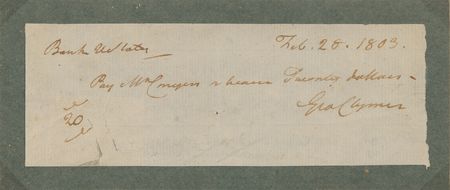 Bank U States Feb. 28. 1803.
Pay Mr Conyers or bearer Twenty dollars
20
Geo Clymer